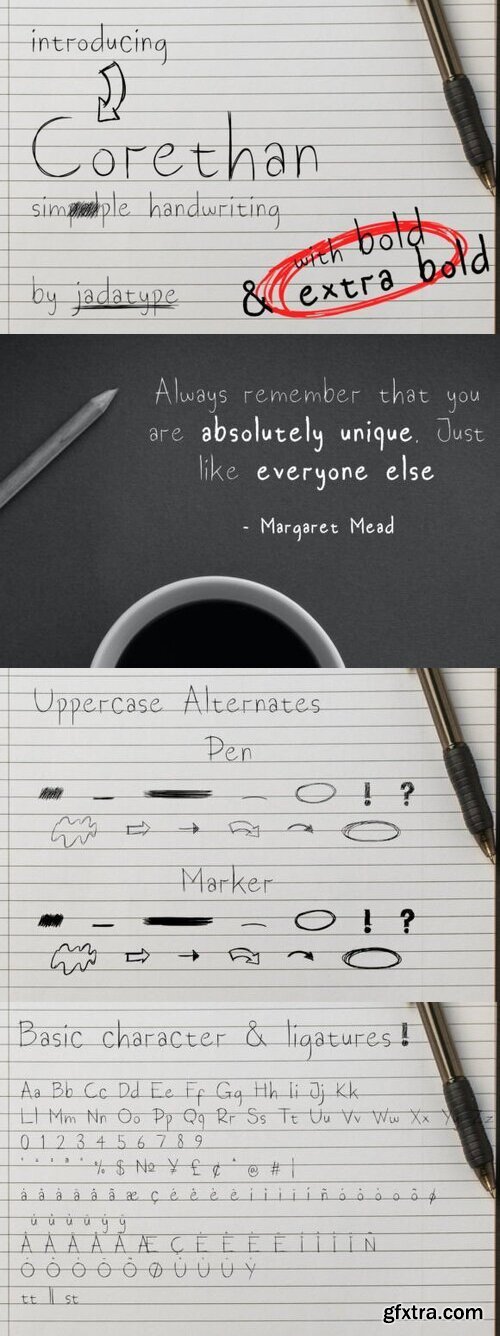 introducing
Corethan
simple handwriting
with bold
by jadatype
& extra bold
Always remember that you
are absolutely unique. Just
like everyone else
- Margaret Mead
Uppercase Alternates
Pen
! ?
Marker
! ?
Basic character & ligatures!
Aa Bb Cc Dd Ee Ff Gg Hh Ii Jj Kk
Ll Mm Nn Oo Pp Qq Rr Ss Tt Uu Vv Ww Xx
0 1 2 3 4 5 6 7 8 9
% $ № ¥ £ ¢ @ # |
tt ll st
gfxtra.com